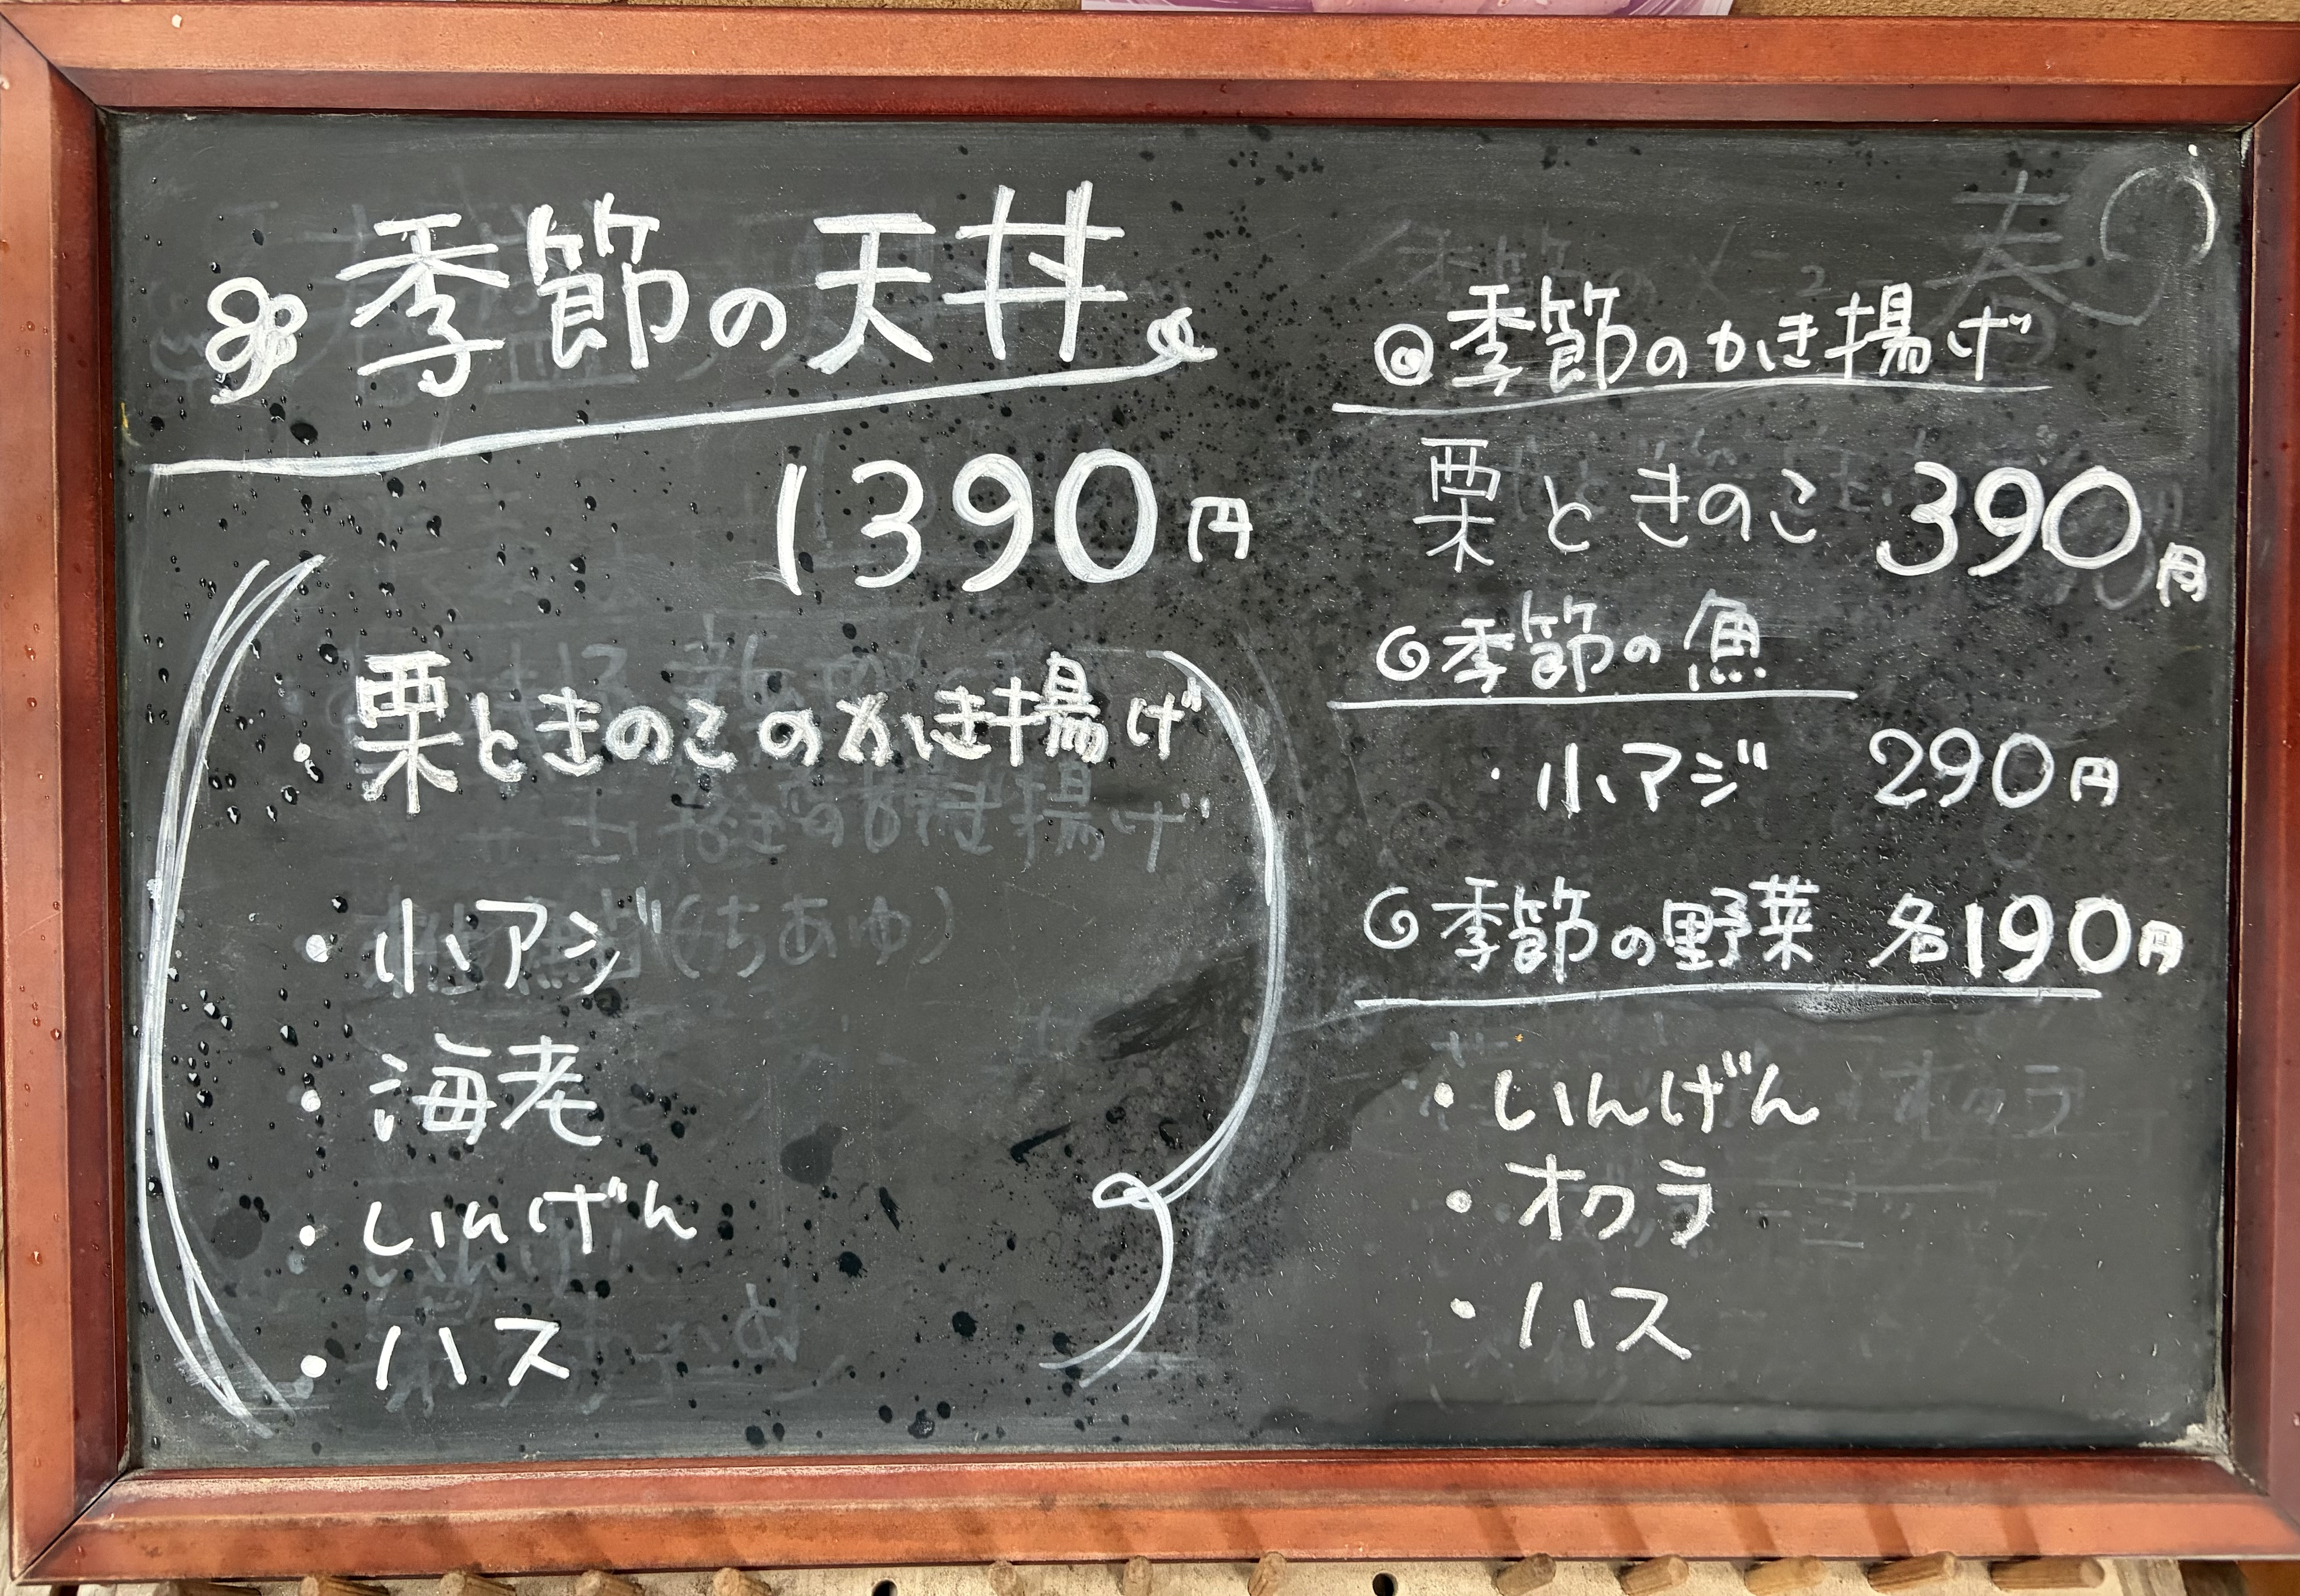 季節の天丼
1390円
・栗ときのこのかき揚げ
・小アジ
・海老
・いんげん
・ハス
季節のかき揚げ
栗ときのこ 390円
季節の魚
・小アジ 290円
季節の野菜 各190円
・いんげん
・オクラ
・ハス